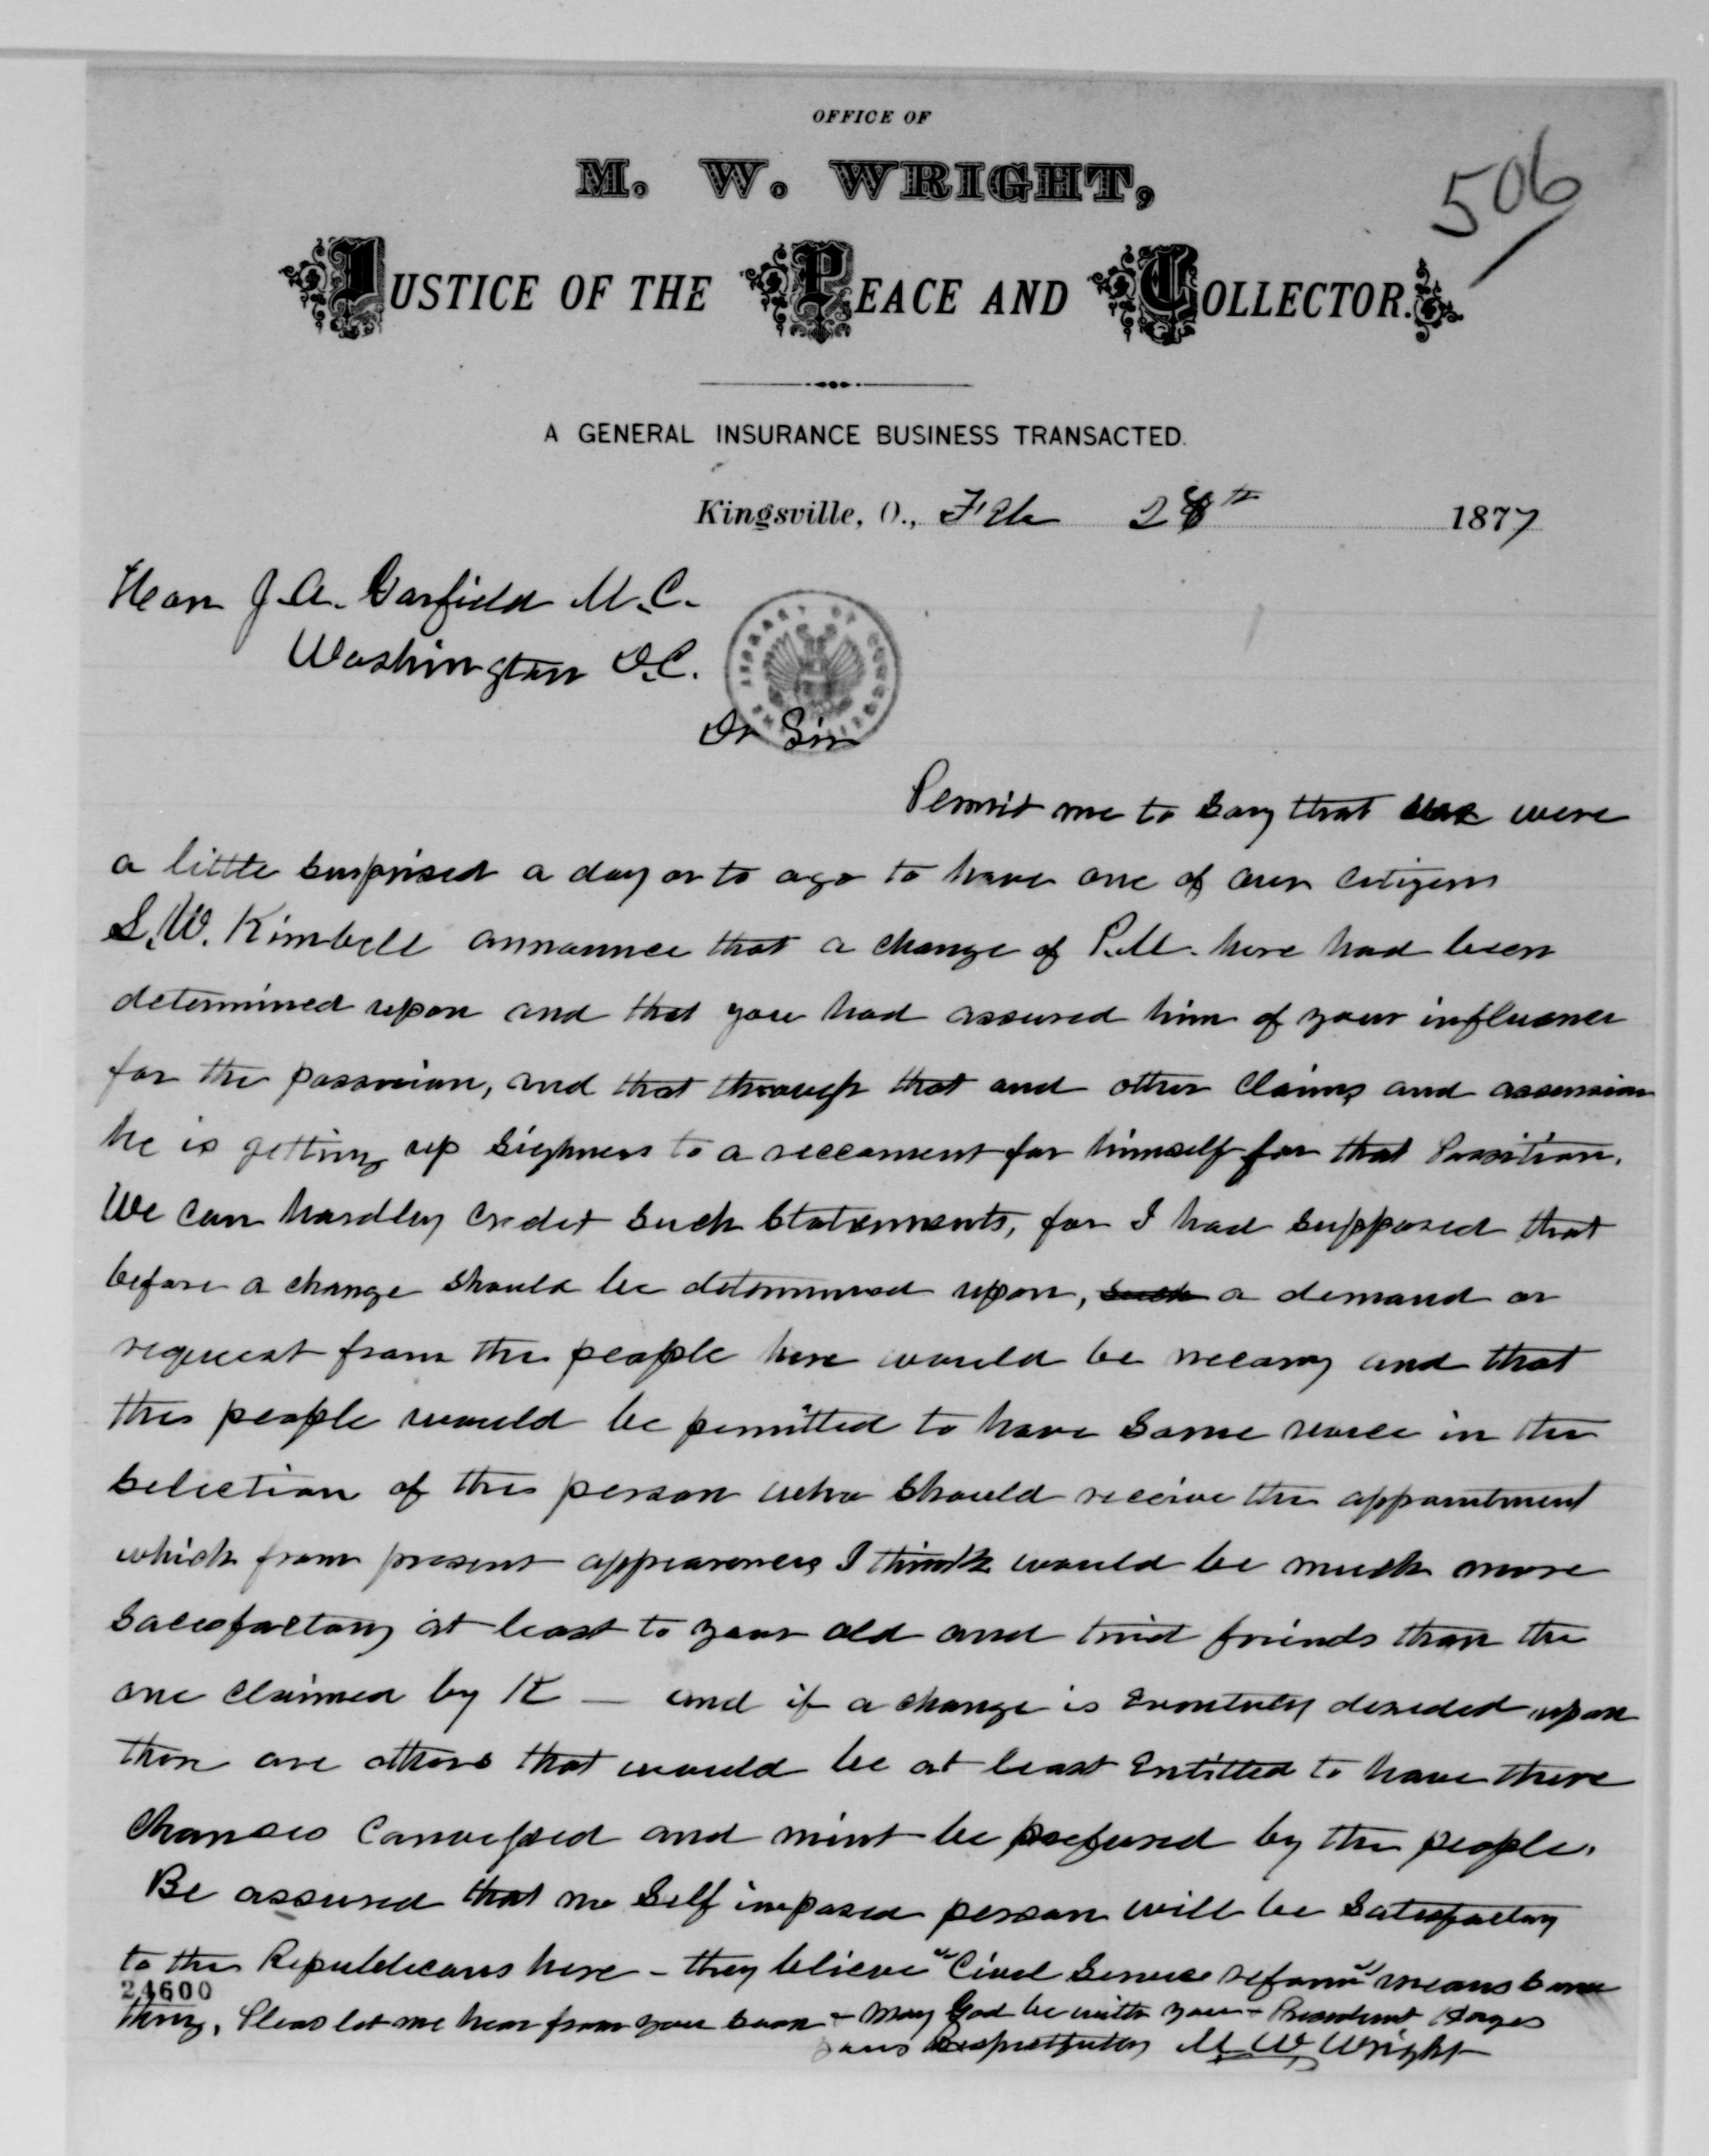 OFFICE OF
M. W. WRIGHT,
506
JUSTICE OF THE PEACE AND COLLECTOR.
A GENERAL INSURANCE BUSINESS TRANSACTED.
Kingsville, O., Feb 28th 1877
Hon J. A. Garfield M.C.
Washington D.C.
LIBRARY OF CONGRESS
Dr Sir
Permit me to say that we were
a little surprised a day or to ago to have one of our citizens
S. W. Kimbell announce that a change of P.M. here had been
determined upon and that you had assured him of your influence
for the possision, and that through that and other claims and assersion
he is getting up sighners to a reccoment for himself for that Possition.
We can hardley credit such statements, for I had supposed that
before a change should be determined upon, such a demand or
request from the people here would be necary and that
the people would be permitted to have some voice in the
selection of the person who should receive the appointment
which from present appearences I think would be much more
satisfactory at least to your old and tried friends than the
one claimed by K — and if a change is eventuly deseded upon
there are others that would be at least entitled to have there
chances canvessed and mint be prefured by the people.
Be assured that no self imposed person will be satisfactory
to the Republicans here - they believe "Civel Service reform" means some
24600
thing. Pleas let me hear from you soon & May God be with you & President Hayes
yours Respectfuley M W Wright